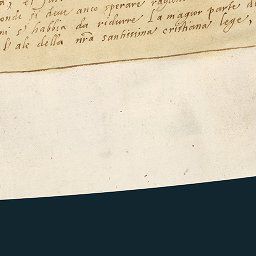 onde si deue anco sperare
si habbia da ridurre La magior parte di
ale della nra santissima cristiana lege,